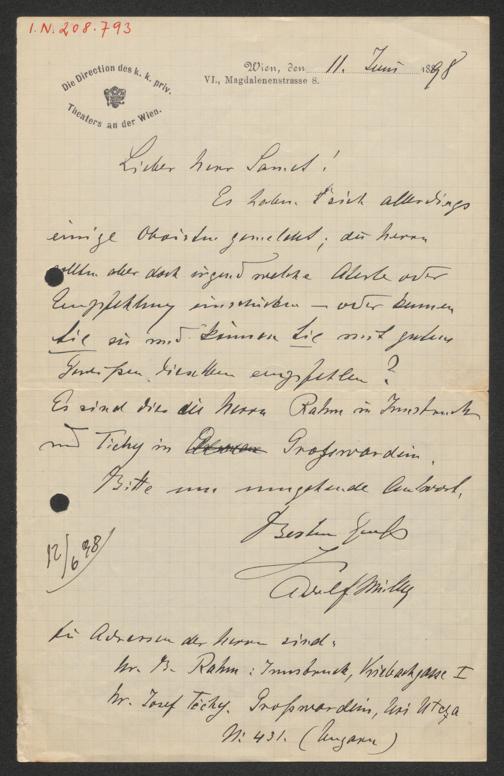 I.N. 208.793
Die Direction des k. k. priv.
Theaters an der Wien.
Wien, den 11. Juni 1898
VI., Magdalenenstrasse 8.
Lieber Herr
Es haben sich allerdings
einige Oboisten gemeldet; die Herrn
sollten aber doch irgend welche Atteste oder
Empfehlung einschicken – oder kennen
Sie sie und können Sie mit gutem
Gewissen dieselben empfehlen?
Es sind dies die Herrn Rahm in Innsbruck
und Tichy in Großwardein.
Bitte um umgehende Antwort.
Besten Gruß
12/6 98
Adolf Müller
Die Adressen der Herrn sind:
Hr. B. Rahm: Innsbruck, I
Hr. Josef Tichy. Großwardein, Uri Utcza
Nº 431. (Ungarn)